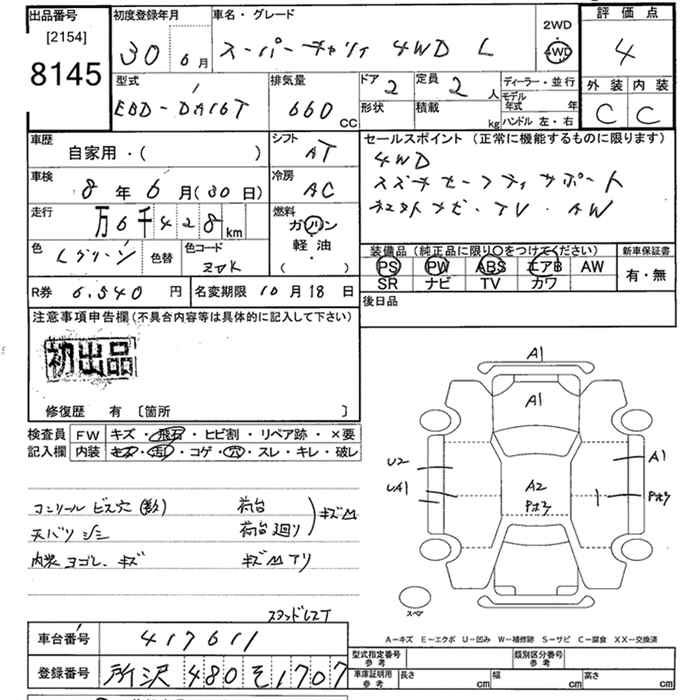 出品番号
[2154]
8145
初度登録年月
30年 6月
車名・グレード
スーパーキャリィ 4WD L
2WD
4WD
評価点
4
外装 内装
C C
型式
EBD-DA16T
排気量
660 CC
ドア 2
定員 2人
形状
積載 kg
ディーラー・並行
モデル年式 年
ハンドル 左・右
車歴
自家用・( )
シフト
AT
セールスポイント (正常に機能するものに限ります)
4WD
スズキセーフティサポート
ナビ・TV・AW
車検
8年 6月(30日)
冷房
AC
走行
万6千428km
燃料
ガソリン
軽油
・
( )
色
Lグリーン
色替
色コード
装備品 (純正品に限り○をつけてください)
PS PW ABS エアB AW
SR ナビ TV カワ
新車保証書
有・無
R券 6.540円
名変期限 10月18日
後日品
注意事項申告欄(不具合内容等は具体的に記入して下さい)
初出品
修復歴 有 〔箇所 〕
検査員記入欄
FW キズ・飛石・ヒビ割・リペア跡・×要
内装 キズ・汚・コゲ・穴・スレ・キレ・破レ
コンソール ビス穴(数)
天バリ シミ
内装 ヨゴレ、キズ
荷台
荷台廻り
キズ凹
キズ凹 サリ
スタッドレスT
A1
A1
U2
UA1
A2
A1
スペア
A-キズ E-エクボ U-凹み W-補修跡 S-サビ C-腐食 XX-交換済
車台番号 417611
登録番号 所沢 480 そ 1707
型式指定番号 参考
類別区分番号 参考
車庫証明用 参考
長さ cm 幅 cm 高さ cm